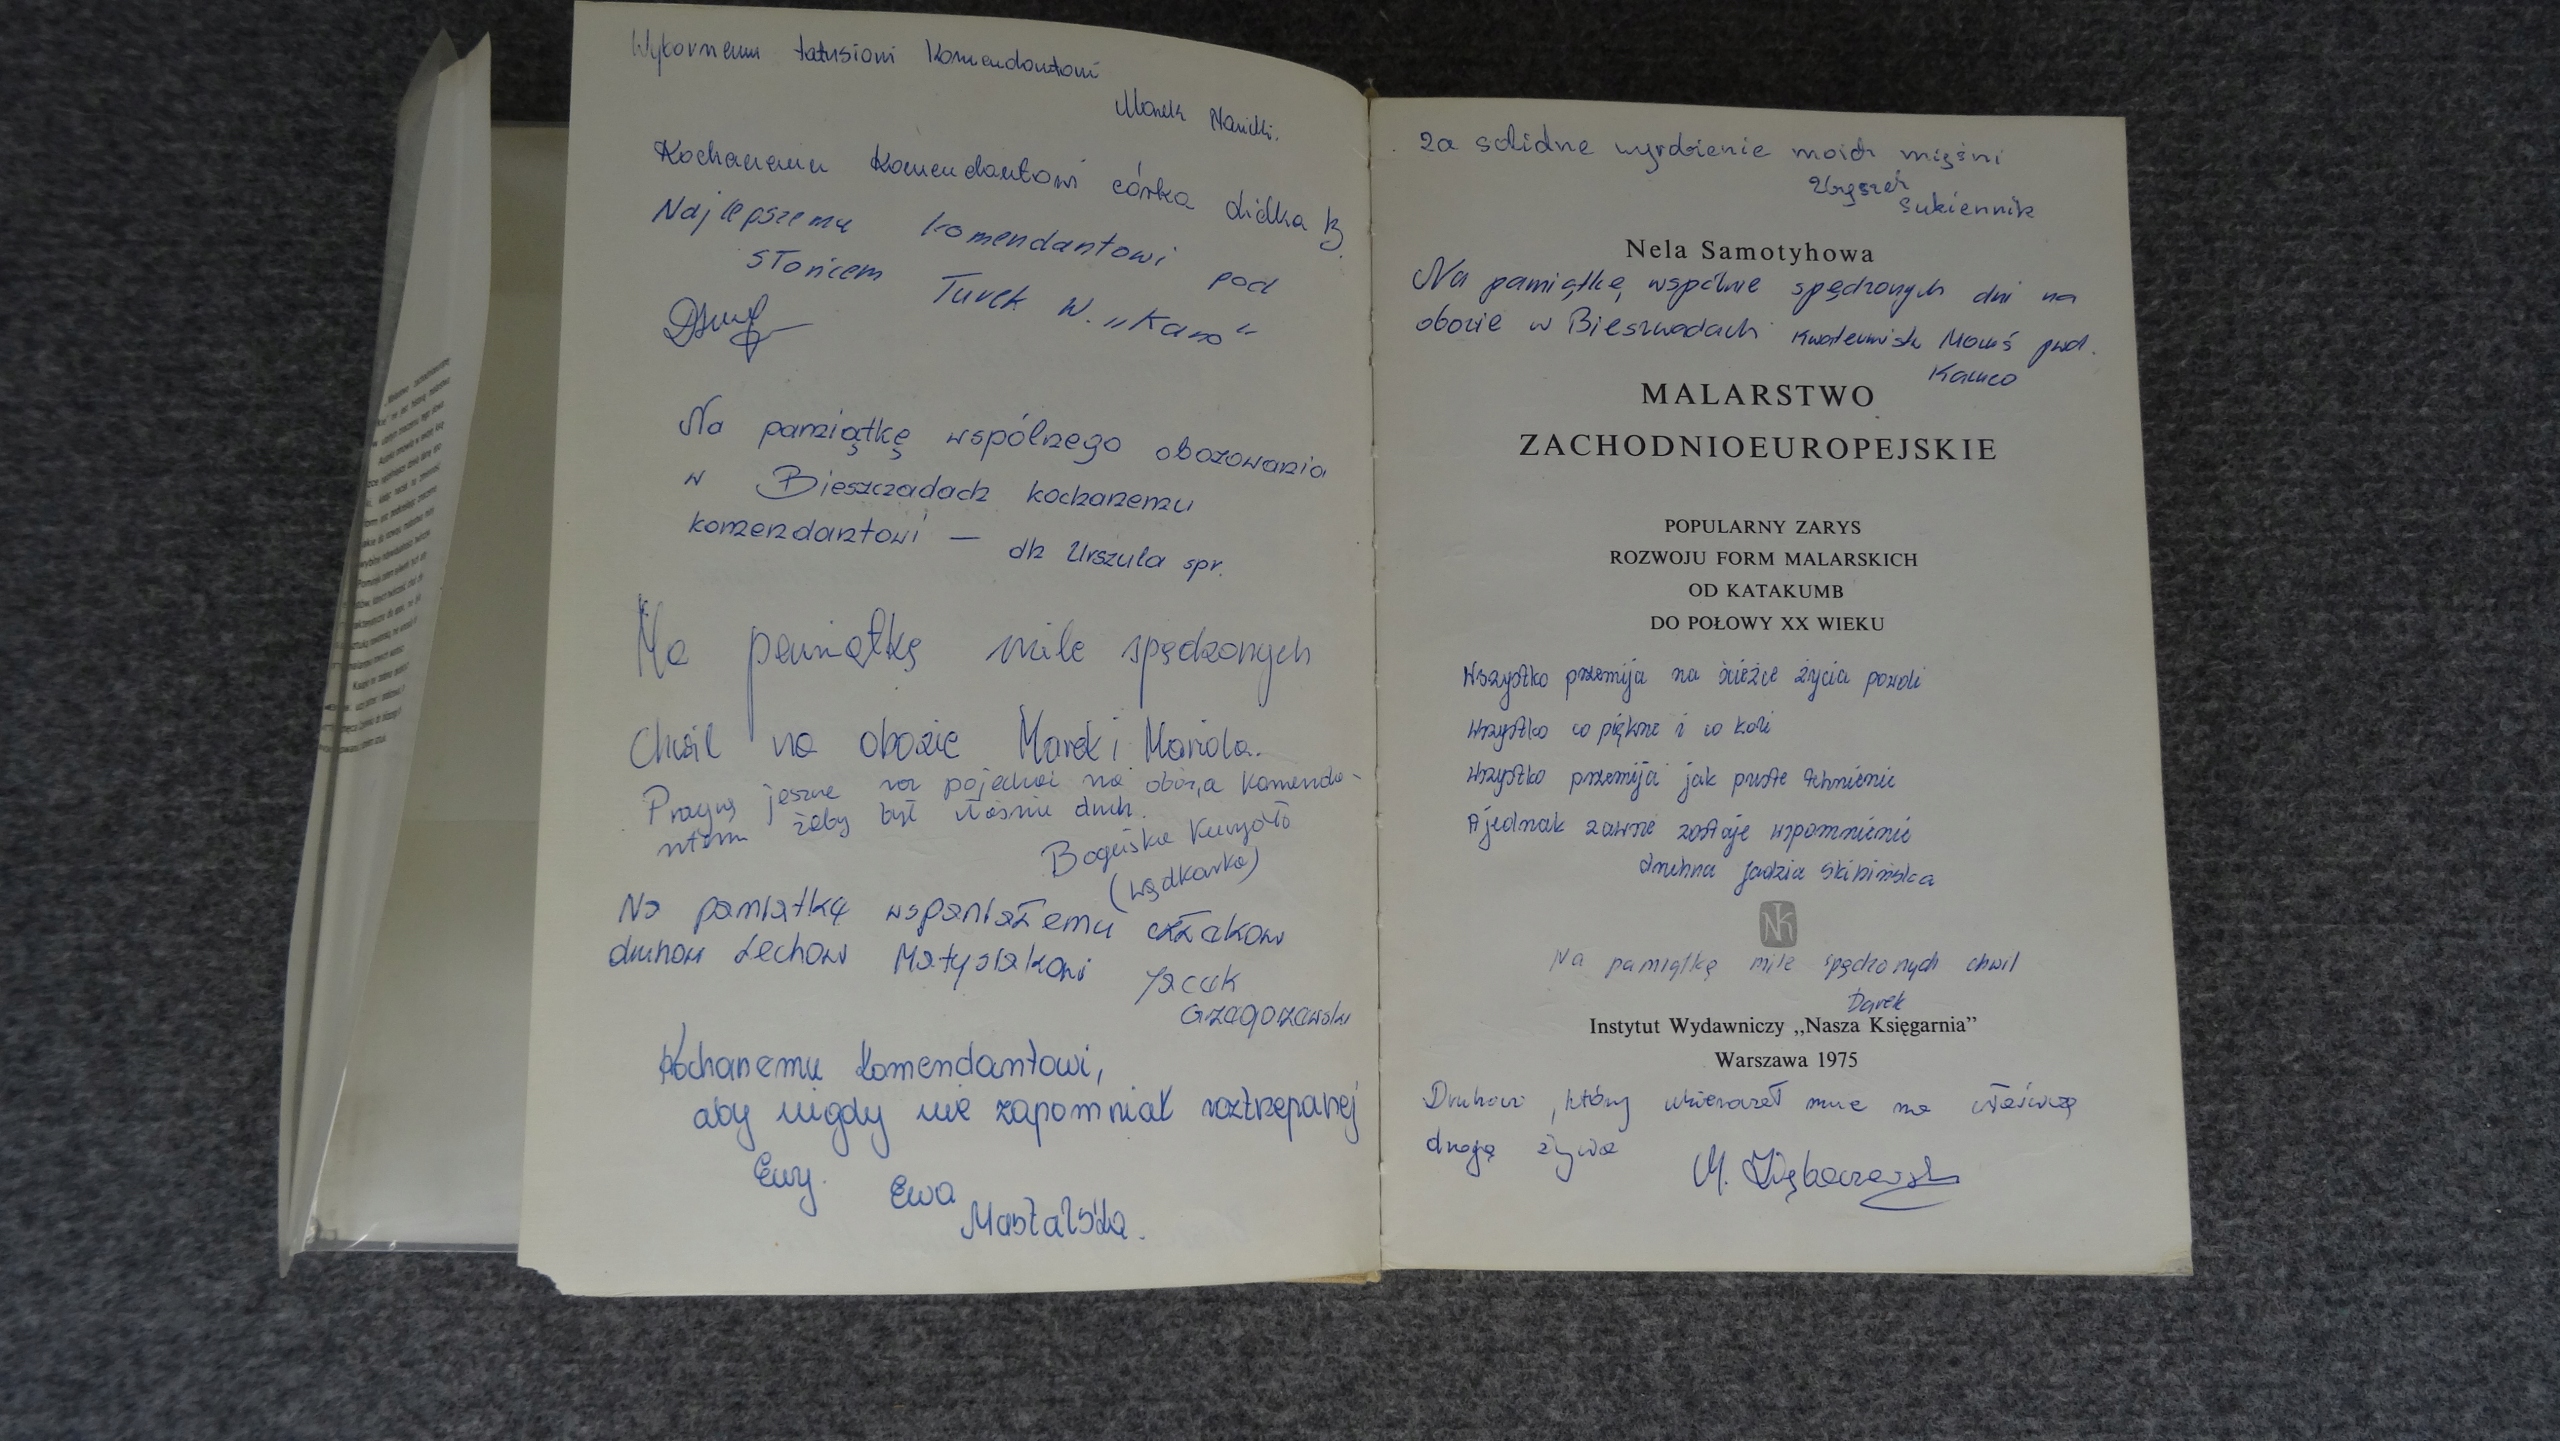 Wybornemu tatusiowi Komendantowi
Marek
Kochanemu Komendantowi córka Lidka B.
Najlepszemu komendantowi pod
słońcem Turek W. „Karo"
Na pamiątkę wspólnego obozowania
w Bieszczadach kochanemu
komendantowi — dh Urszula spr.
Na pamiątkę mile spędzonych
Chwil na obozie Marek i Mariola.
Pragnę jeszcze raz pojechać na obóz, a komenda-
ntem żeby był właśnie druh.
Boguśka Kuryło
(wędkarka)
Na pamiątkę wspaniałemu człakowi
druhowi Lechowi Matysiakowi
Jacek
Grzegorzewski
Kochanemu komendantowi,
aby nigdy nie zapomniał roztrzepanej
Ewy. Ewa
Mastalska.
za solidne wyrobienie moich mięśni
Zbyszek
Sukiennik
Nela Samotyhowa
Na pamiątkę wspólnie spędzonych dni na
obozie w Bieszczadach Kwatermistrz pwd.
MALARSTWO
ZACHODNIOEUROPEJSKIE
POPULARNY ZARYS
ROZWOJU FORM MALARSKICH
OD KATAKUMB
DO POŁOWY XX WIEKU
Wszystko przemija na ścieżce życia powoli
Wszystko co piękne i co boli
Wszystko przemija jak puste tchnienie
A jednak zawsze zostaje wspomnienie
druhna Jadzia Skibińska
NK
Na pamiątkę mile spędzonych chwil
Darek
Instytut Wydawniczy „Nasza Księgarnia”
Warszawa 1975
Druhowi, który ukierował mnie na właściwą
drogę życia
M.